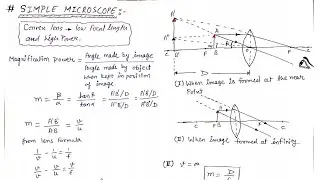 # SIMPLE MICROSCOPE:-
Convex lens → low focal length
and high Power.
Magnification power = Angle made by image
Angle made by object
when kept in position
of image
m = β/α = tanβ/tanα = A'B'/D / AB/D
m = A'B'/AB = v/u
from lens formula
1/v - 1/u = 1/f
v/v - v/u = v/f
D
(I) When image is formed at the near
Point
(II) When image formed at infinity
(III) v = ∞
m = D/